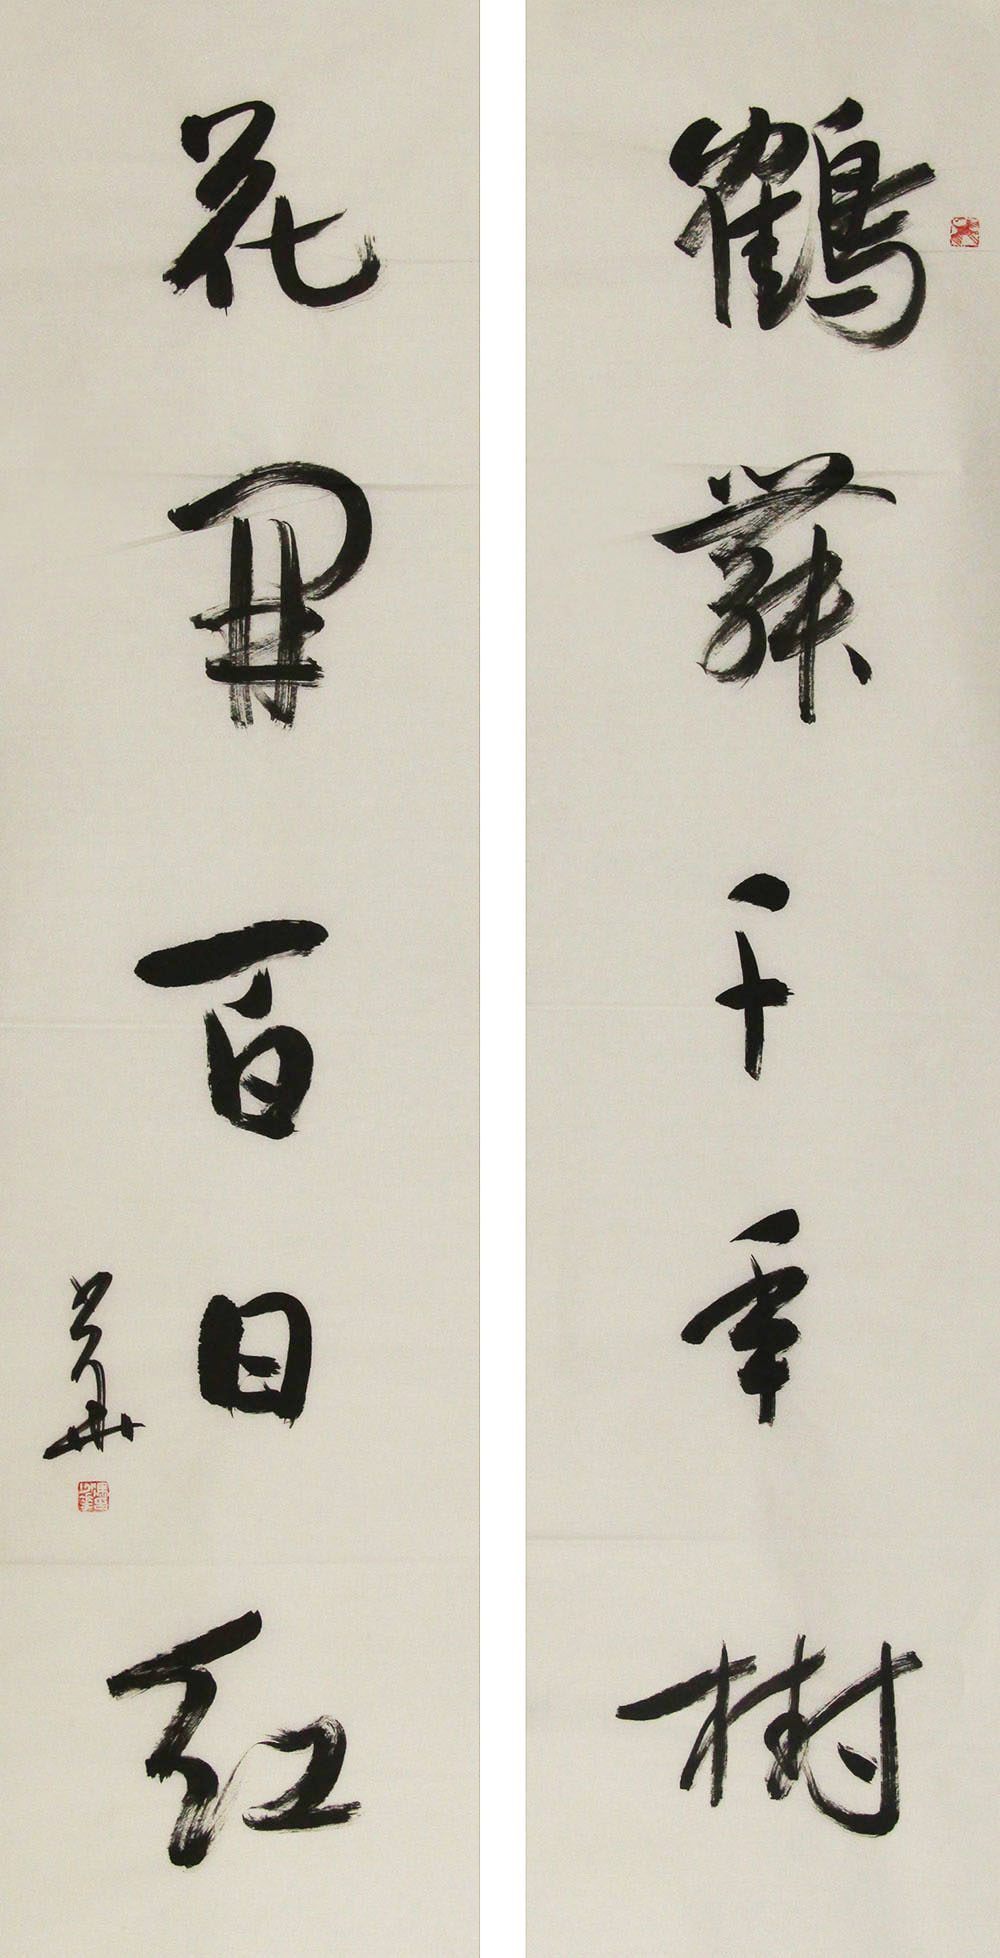 鶴舞千年樹
花開百日紅